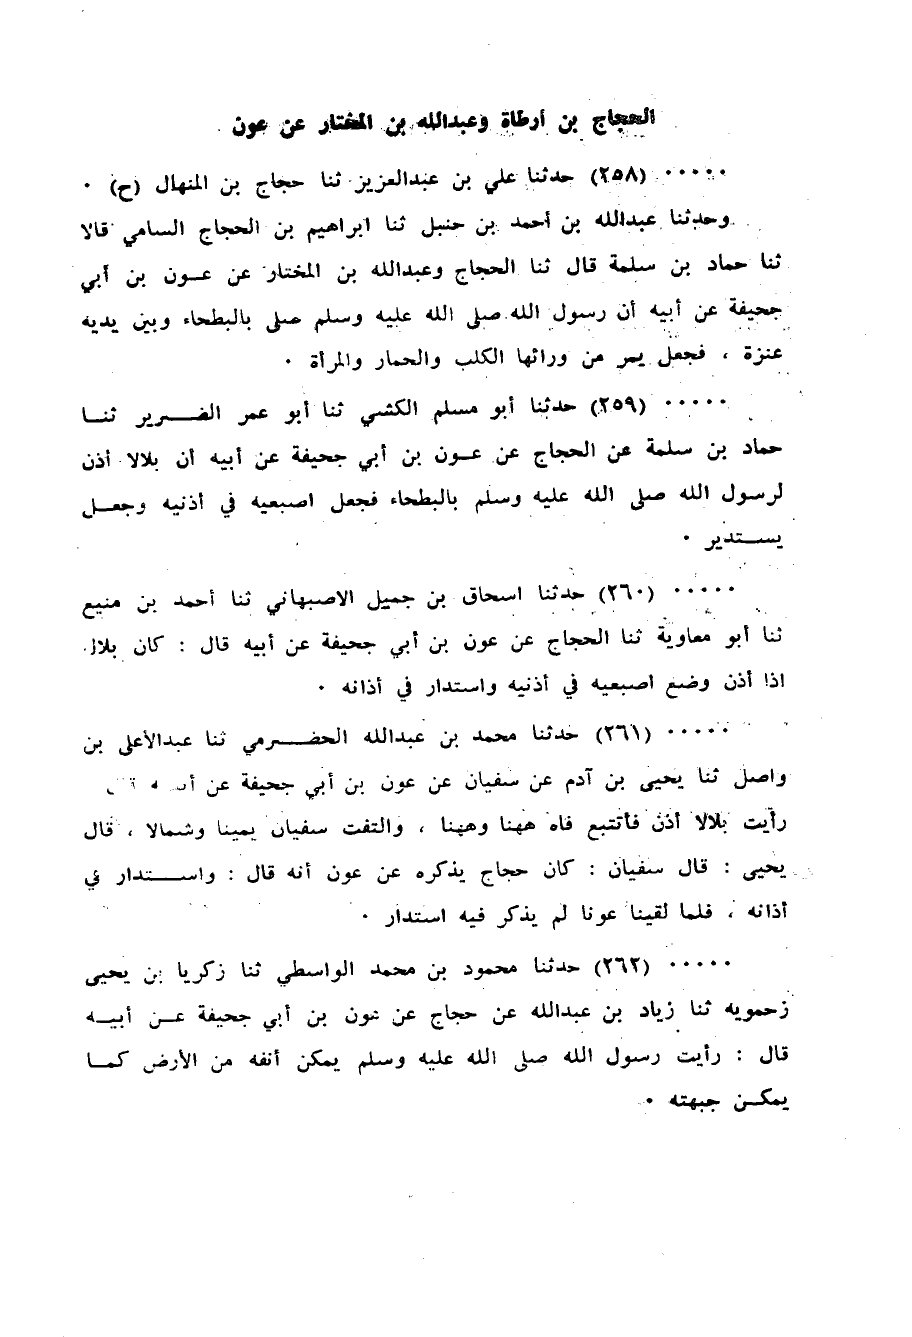 الحجاج بن أرطاة وعبدالله بن المختار عن عون
٠٠٠٠٠ (٢٥٨) حدثنا علي بن عبدالعزيز ثنا حجاج بن المنهال (ح) ٠
وحدثنا عبدالله بن أحمد بن حنبل ثنا ابراهيم بن الحجاج السامي قالا
ثنا حماد بن سلمة قال ثنا الحجاج وعبدالله بن المختار عن عـــون بن أبي
جحيفة عن أبيه أن رسول الله صلى الله عليه وسلم صلى بالبطحاء وبين يديه
عنزة ، فجعل يمر من ورائها الكلب والحمار والمرأة ٠
٠٠٠٠٠ (٢٥٩) حدثنا أبو مسلم الكشي ثنا أبو عمر الضـــرير ثنـــا
حماد بن سلمة عن الحجاج عن عـــون بن أبي جحيفة عن أبيه أن بلالا أذن
لرسول الله صلى الله عليه وسلم بالبطحاء فجعل اصبعيه في أذنيه وجعـــل
يســـتدير ٠
٠٠٠٠٠ (٢٦٠) حدثنا اسحاق بن جميل الاصبهاني ثنا أحمد بن منيع
ثنا أبو معاوية ثنا الحجاج عن عون بن أبي جحيفة عن أبيه قال : كان بلال
اذا أذن وضع اصبعيه في أذنيه واستدار في أذانه ٠
٠٠٠٠٠ (٢٦١) حدثنا محمد بن عبدالله الحضـــرمي ثنا عبدالأعلى بن
واصل ثنا يحيى بن آدم عن سفيان عن عون بن أبي جحيفة عن
رأيت بلالا أذن فأتتبع فاه ههنا وههنا ، والتفت سفيان يمينا وشمالا ، قال
يحيى : قال سفيان : كان حجاج يذكره عن عون أنه قال : واســـتدار في
أذانه ، فلما لقينا عونا لم يذكر فيه استدار ٠
٠٠٠٠٠ (٢٦٢) حدثنا محمود بن محمد الواسطي ثنا زكريا بن يحيى
زحمويه ثنا زياد بن عبدالله عن حجاج عن عون بن أبي جحيفة عـــن أبيـــه
قال : رأيت رسول الله صلى الله عليه وسلم يمكن أنفه من الأرض كمـــا
يمكـــن جبهته ٠